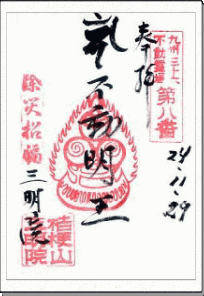 奉拝
九州三十六
不動霊場
第八番
24.11.29
不動明王
除災招福
三明院
桔梗山
三明院